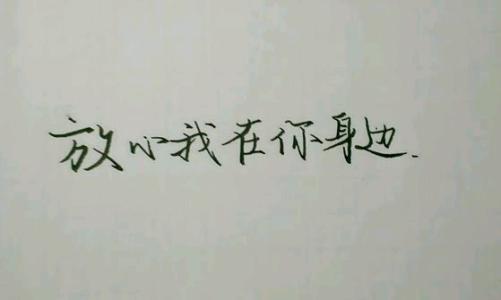 放心我在你身边.